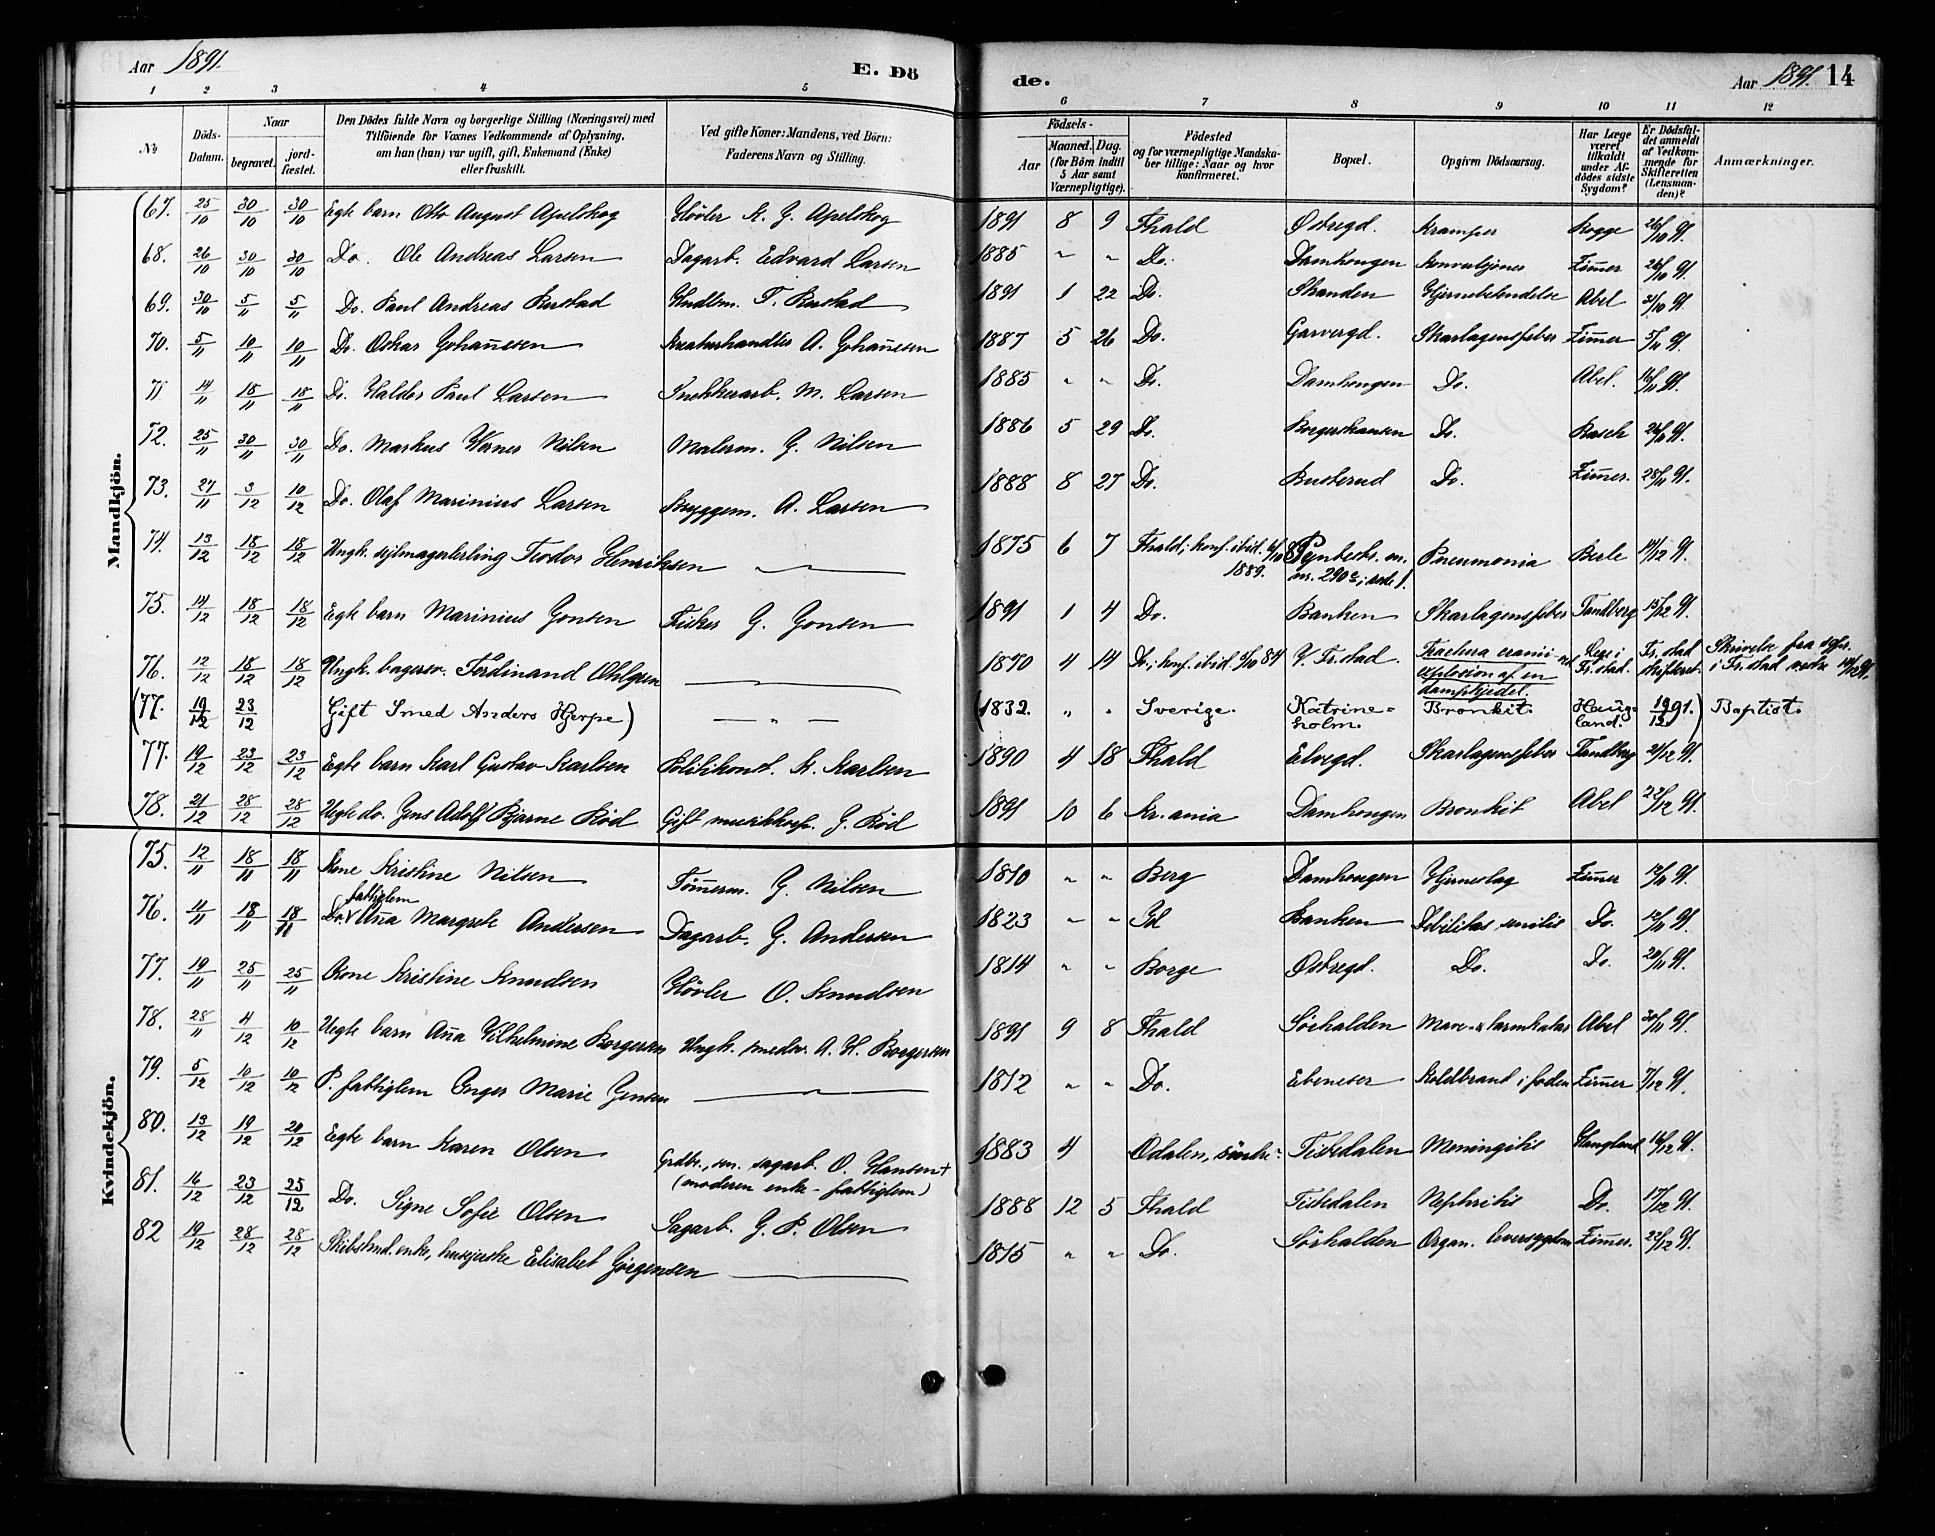 Aar 1891. E. Dö de. Aar 1891. 14
1 2 3 4 5 6 7 8 9 10 11 12
No. Döds-Datum. Naar begravet. jord-fæstet. Den Dödes fulde Navn og borgerlige Stilling (Næringsvei) med Tilföiende for Voxnes Vedkommende af Oplysning, om han (hun) var ugift, gift, Enkemand (Enke) eller fraskilt. Ved gifte Koner: Mandens, ved Börn: Faderens Navn og Stilling. Födsels- Aar Maaned. Dag. (for Börn indtil 5 Aar samt Værnepligtige). Födested og for værnepligtige Mandskaber tillige: Naar og hvor konfirmeret. Bopæl. Opgiven Dödsaarsag. Har Læge været tilkaldt under Afdödes sidste Sygdom? Er Dödsfaldet anmeldt af Vedkommende for Skifteretten (Lensmanden)? Anmærkninger.
Mandkjön.
67. 25/10 30/10 30/10 Egte barn Otto August Apelskog Hövler K. G. Apelskog 1891 8 9 Fhald Östregd. Kramper Kogge 26/10 91.
68. 26/10 30/10 30/10 Do. Ole Andreas Larsen Dagarb. Edvard Larsen 1885 " " Do. Damhougen Konvulsjoner Zimer 26/10 91.
69. 30/10 5/11 5/11 Do. Paul Andreas Rustad Hndlm. T. Rustad 1891 1 22 Do. Skanden Hjernebetendelse Abel 31/10 91.
70. 5/11 10/11 10/11 Do. Oskar Johan̄esen Kreaturhandler A. Johan̄esen 1887 5 26 Do. Garvergd. Skarlagensfeber Zimer 5/11 91.
71 14/11 18/11 18/11 Do. Haldor Paul Larsen Snekkerarb. M. Larsen 1885 " " Do. Damhougen Do. Abel. 16/11 91.
72. 25/11 30/11 30/11 Do. Markus Verner Nilsen Malerm. G. Nilsen 1886 5 29 Do. Borgerskansen Do. Rasch 26/11 91.
73. 27/11 3/12 10/12 Do. Olaf Marinius Larsen Bryggem. A. Larsen 1888 8 27 Do. Busterud Do. Zimer. 28/11 91.
74. 13/12 18/12 18/12 Ungk. sejlmagerlerling Teodor Henriksen " 1875 6 7 Fhald; konf. ibid. 6/10 1889. Pneumonia Berle 14/12 91.
75. 14/12 18/12 18/12 Egte barn Marinius Jonsen Fisker G. Jonsen 1891 1 4 Do. Banken Skarlagensfeber Tandberg 15/12 91.
76. 12/12 18/12 18/12 Ungk. bagersv. Ferdinand Ohlgren 1870 4 14 Do.; konf. ibid. 5/10 84 V. Fr.stad. Fractura cranii ved explosion af en dampkjedel. Læge i Fr.stad. Fr.stad skifteret. Skrivelse fra sgpr. i Fr.stad
(77. 19/12 23/12 Gift Smed Anders Hjerpe) — " — (1832. " " Sverige. Katrineholm. Bronkit. Haugland. 19/12 91.) Baptist.
77. 19/12 23/12 23/12 Egte barn Karl Gustav Karlsen Politikonst. K. Karlsen 1890 4 18 Fhald Elvegd. Skarlagensfeber Tandberg 21/12 91.
78. 21/12 28/12 28/12 Uegte do. Jens Adolf Bjarne Röd Gift musikkorp. G. Röd 1891 10 6 Kr.ania Damhougen Bronkit Abel 22/12 91.
Kvindekjön.
75. 12/11 18/11 18/11 Kone Kristine Nilsen Töm̄erm. G. Nilsen 1810 " " Berg Damhougen Hjerneslag Zimer 12/11 91.
76. 11/11 18/11 18/11 Do. fattiglem An̄a Margrete Andersen Dagarb. G. Andersen 1823 " " Id Banken Debilitas senilis Do. 12/11 91.
77. 19/11 25/11 25/11 Kone Kristine Knudsen Hövler O. Knudsen 1814 " " Borge Östregd. Do. Do. 20/11 91.
78. 28/11 4/12 10/12 Uegte barn An̄a Vilhelmine Borgersen Ungk. smedsv. A. H. Borgersen 1891 9 8 Fhald Sörhalden Mave- & tarmkatar Abel 30/11 91.
79. 5/12 10/12 10/12 P. fattiglem Inger Marie Jensen " 1812 " " Do. Ebeneser Koldbrand i foden Zimer 7/12 91.
80. 13/12 19/12 20/12 Egte barn Karen Olsen Grdbr., sen. sagarb. O. Hansen + (moderen enke - fattiglem) 1883 4 Odalen, söndre Tistedalen Meningitis Haugland 16/12 91.
81. 16/12 23/12 25/12 Do. Signe Sofie Olsen Sagarb. G. P. Olsen 1888 12 5 Fhald Tistedalen Nephritis Do. 17/12 91.
82 19/12 28/12 28/12 Skibstmd. enke, husejerske Elisabet Jörgensen 1815 " " Do. Sörhalden Organ. leversygdom Zimer. 22/12 91.